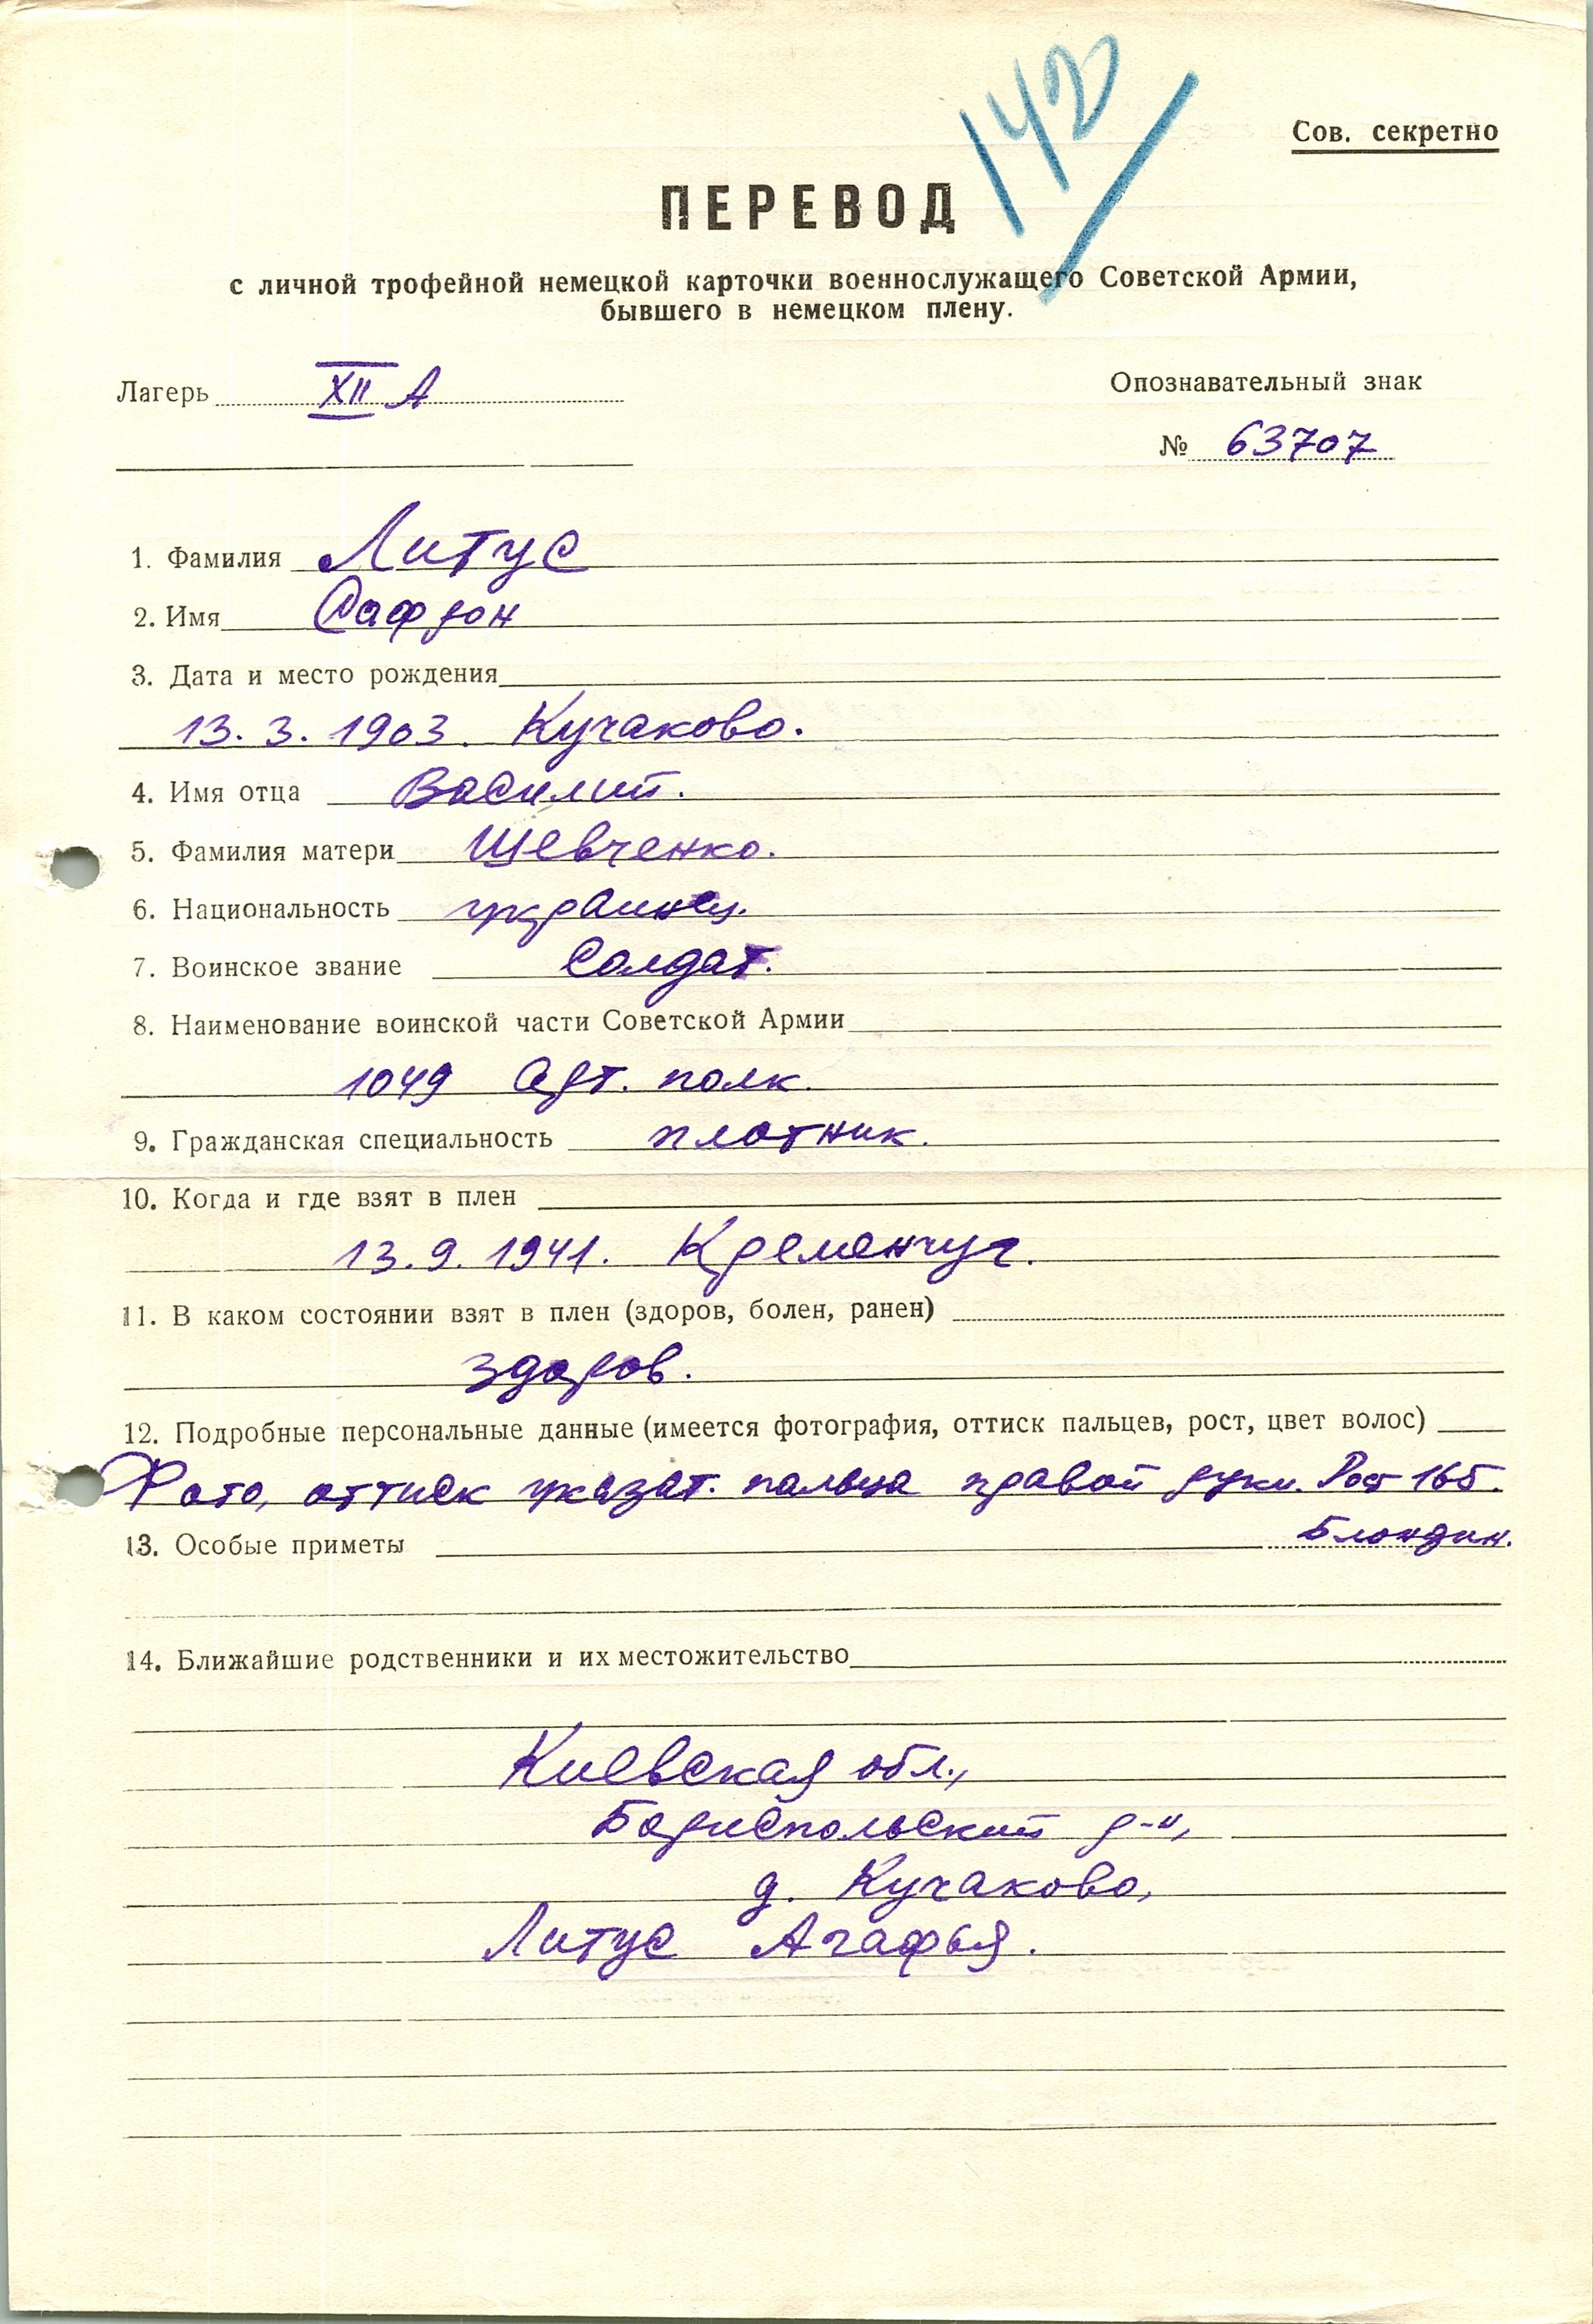 142
Сов. секретно
ПЕРЕВОД
с личной трофейной немецкой карточки военнослужащего Советской Армии,
бывшего в немецком плену.
Лагерь XII А
Опознавательный знак
№ 63707
1. Фамилия Литус
2. Имя Сафрон
3. Дата и место рождения
13.3.1903. Кучаково.
4. Имя отца Василий.
5. Фамилия матери Шевченко.
6. Национальность украинец.
7. Воинское звание Солдат.
8. Наименование воинской части Советской Армии
1049 Арт. полк.
9. Гражданская специальность плотник.
10. Когда и где взят в плен
13.9.1941. Кременчуг.
11. В каком состоянии взят в плен (здоров, болен, ранен)
здоров.
12. Подробные персональные данные (имеется фотография, оттиск пальцев, рост, цвет волос)
Фото, оттиск указат. пальца правой руки. Рост 165.
Блондин.
13. Особые приметы
14. Ближайшие родственники и их местожительство
Киевская обл.,
Бориспольский р-н,
д. Кучаково,
Литус Агафья.